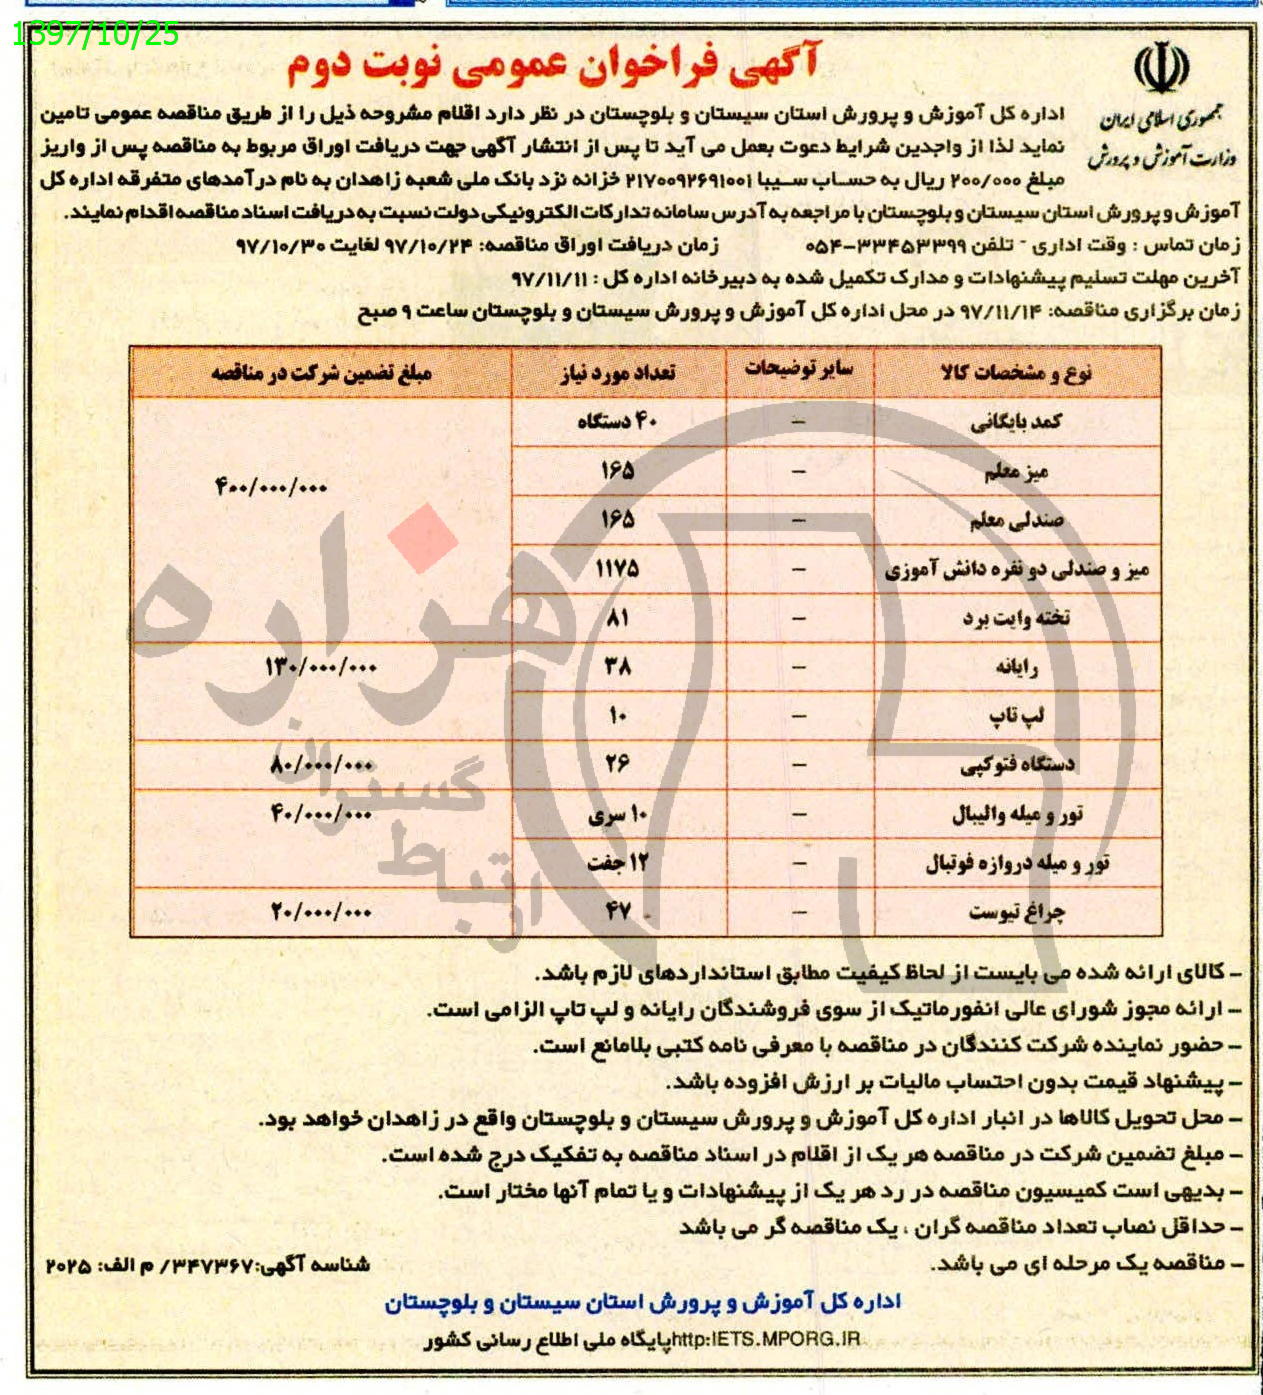 1397/10/25
آگهی فراخوان عمومی نوبت دوم
جمهوری اسلامی ایران
وزارت آموزش و پرورش
اداره کل آموزش و پرورش استان سیستان و بلوچستان در نظر دارد اقلام مشروحه ذیل را از طریق مناقصه عمومی تامین
نماید لذا از واجدین شرایط دعوت بعمل می آید تا پس از انتشار آگهی جهت دریافت اوراق مربوط به مناقصه پس از واریز
مبلغ ۲۰۰/۰۰۰ ریال به حساب سیبا ۲۱۷۰۰۹۲۶۹۱۰۰۱ خزانه نزد بانک ملی شعبه زاهدان به نام درآمدهای متفرقه اداره کل
آموزش و پرورش استان سیستان و بلوچستان با مراجعه به آدرس سامانه تدارکات الکترونیکی دولت نسبت به دریافت اسناد مناقصه اقدام نمایند.
زمان تماس : وقت اداری - تلفن ۳۳۴۵۳۳۹۹-۰۵۴ زمان دریافت اوراق مناقصه: ۹۷/۱۰/۲۴ لغایت ۹۷/۱۰/۳۰
آخرین مهلت تسلیم پیشنهادات و مدارک تکمیل شده به دبیرخانه اداره کل : ۹۷/۱۱/۱۱
زمان برگزاری مناقصه: ۹۷/۱۱/۱۴ در محل اداره کل آموزش و پرورش سیستان و بلوچستان ساعت ۹ صبح
نوع و مشخصات کالا سایر توضیحات تعداد مورد نیاز مبلغ تضمین شرکت در مناقصه
کمد بایگانی – ۴۰ دستگاه
میز معلم – ۱۶۵ ۴۰۰/۰۰۰/۰۰۰
صندلی معلم – ۱۶۵
میز و صندلی دو نفره دانش آموزی – ۱۱۷۵
تخته وایت برد – ۸۱
رایانه – ۳۸ ۱۳۰/۰۰۰/۰۰۰
لپ تاپ – ۱۰
دستگاه فتوکپی – ۲۶ ۸۰/۰۰۰/۰۰۰
تور و میله والیبال – ۱۰ سری ۴۰/۰۰۰/۰۰۰
تور و میله دروازه فوتبال – ۱۲ جفت
چراغ تیوست – ۴۷ ۲۰/۰۰۰/۰۰۰
هزاره
گستران
ارتباط
– کالای ارائه شده می بایست از لحاظ کیفیت مطابق استانداردهای لازم باشد.
– ارائه مجوز شورای عالی انفورماتیک از سوی فروشندگان رایانه و لپ تاپ الزامی است.
– حضور نماینده شرکت کنندگان در مناقصه با معرفی نامه کتبی بلامانع است.
– پیشنهاد قیمت بدون احتساب مالیات بر ارزش افزوده باشد.
– محل تحویل کالاها در انبار اداره کل آموزش و پرورش سیستان و بلوچستان واقع در زاهدان خواهد بود.
– مبلغ تضمین شرکت در مناقصه هر یک از اقلام در اسناد مناقصه به تفکیک درج شده است.
– بدیهی است کمیسیون مناقصه در رد هر یک از پیشنهادات و یا تمام آنها مختار است.
– حداقل نصاب تعداد مناقصه گران ، یک مناقصه گر می باشد
– مناقصه یک مرحله ای می باشد. شناسه آگهی:۳۴۷۳۶۷/ م الف: ۲۰۲۵
اداره کل آموزش و پرورش استان سیستان و بلوچستان
http:IETS.MPORG.IRپایگاه ملی اطلاع رسانی کشور